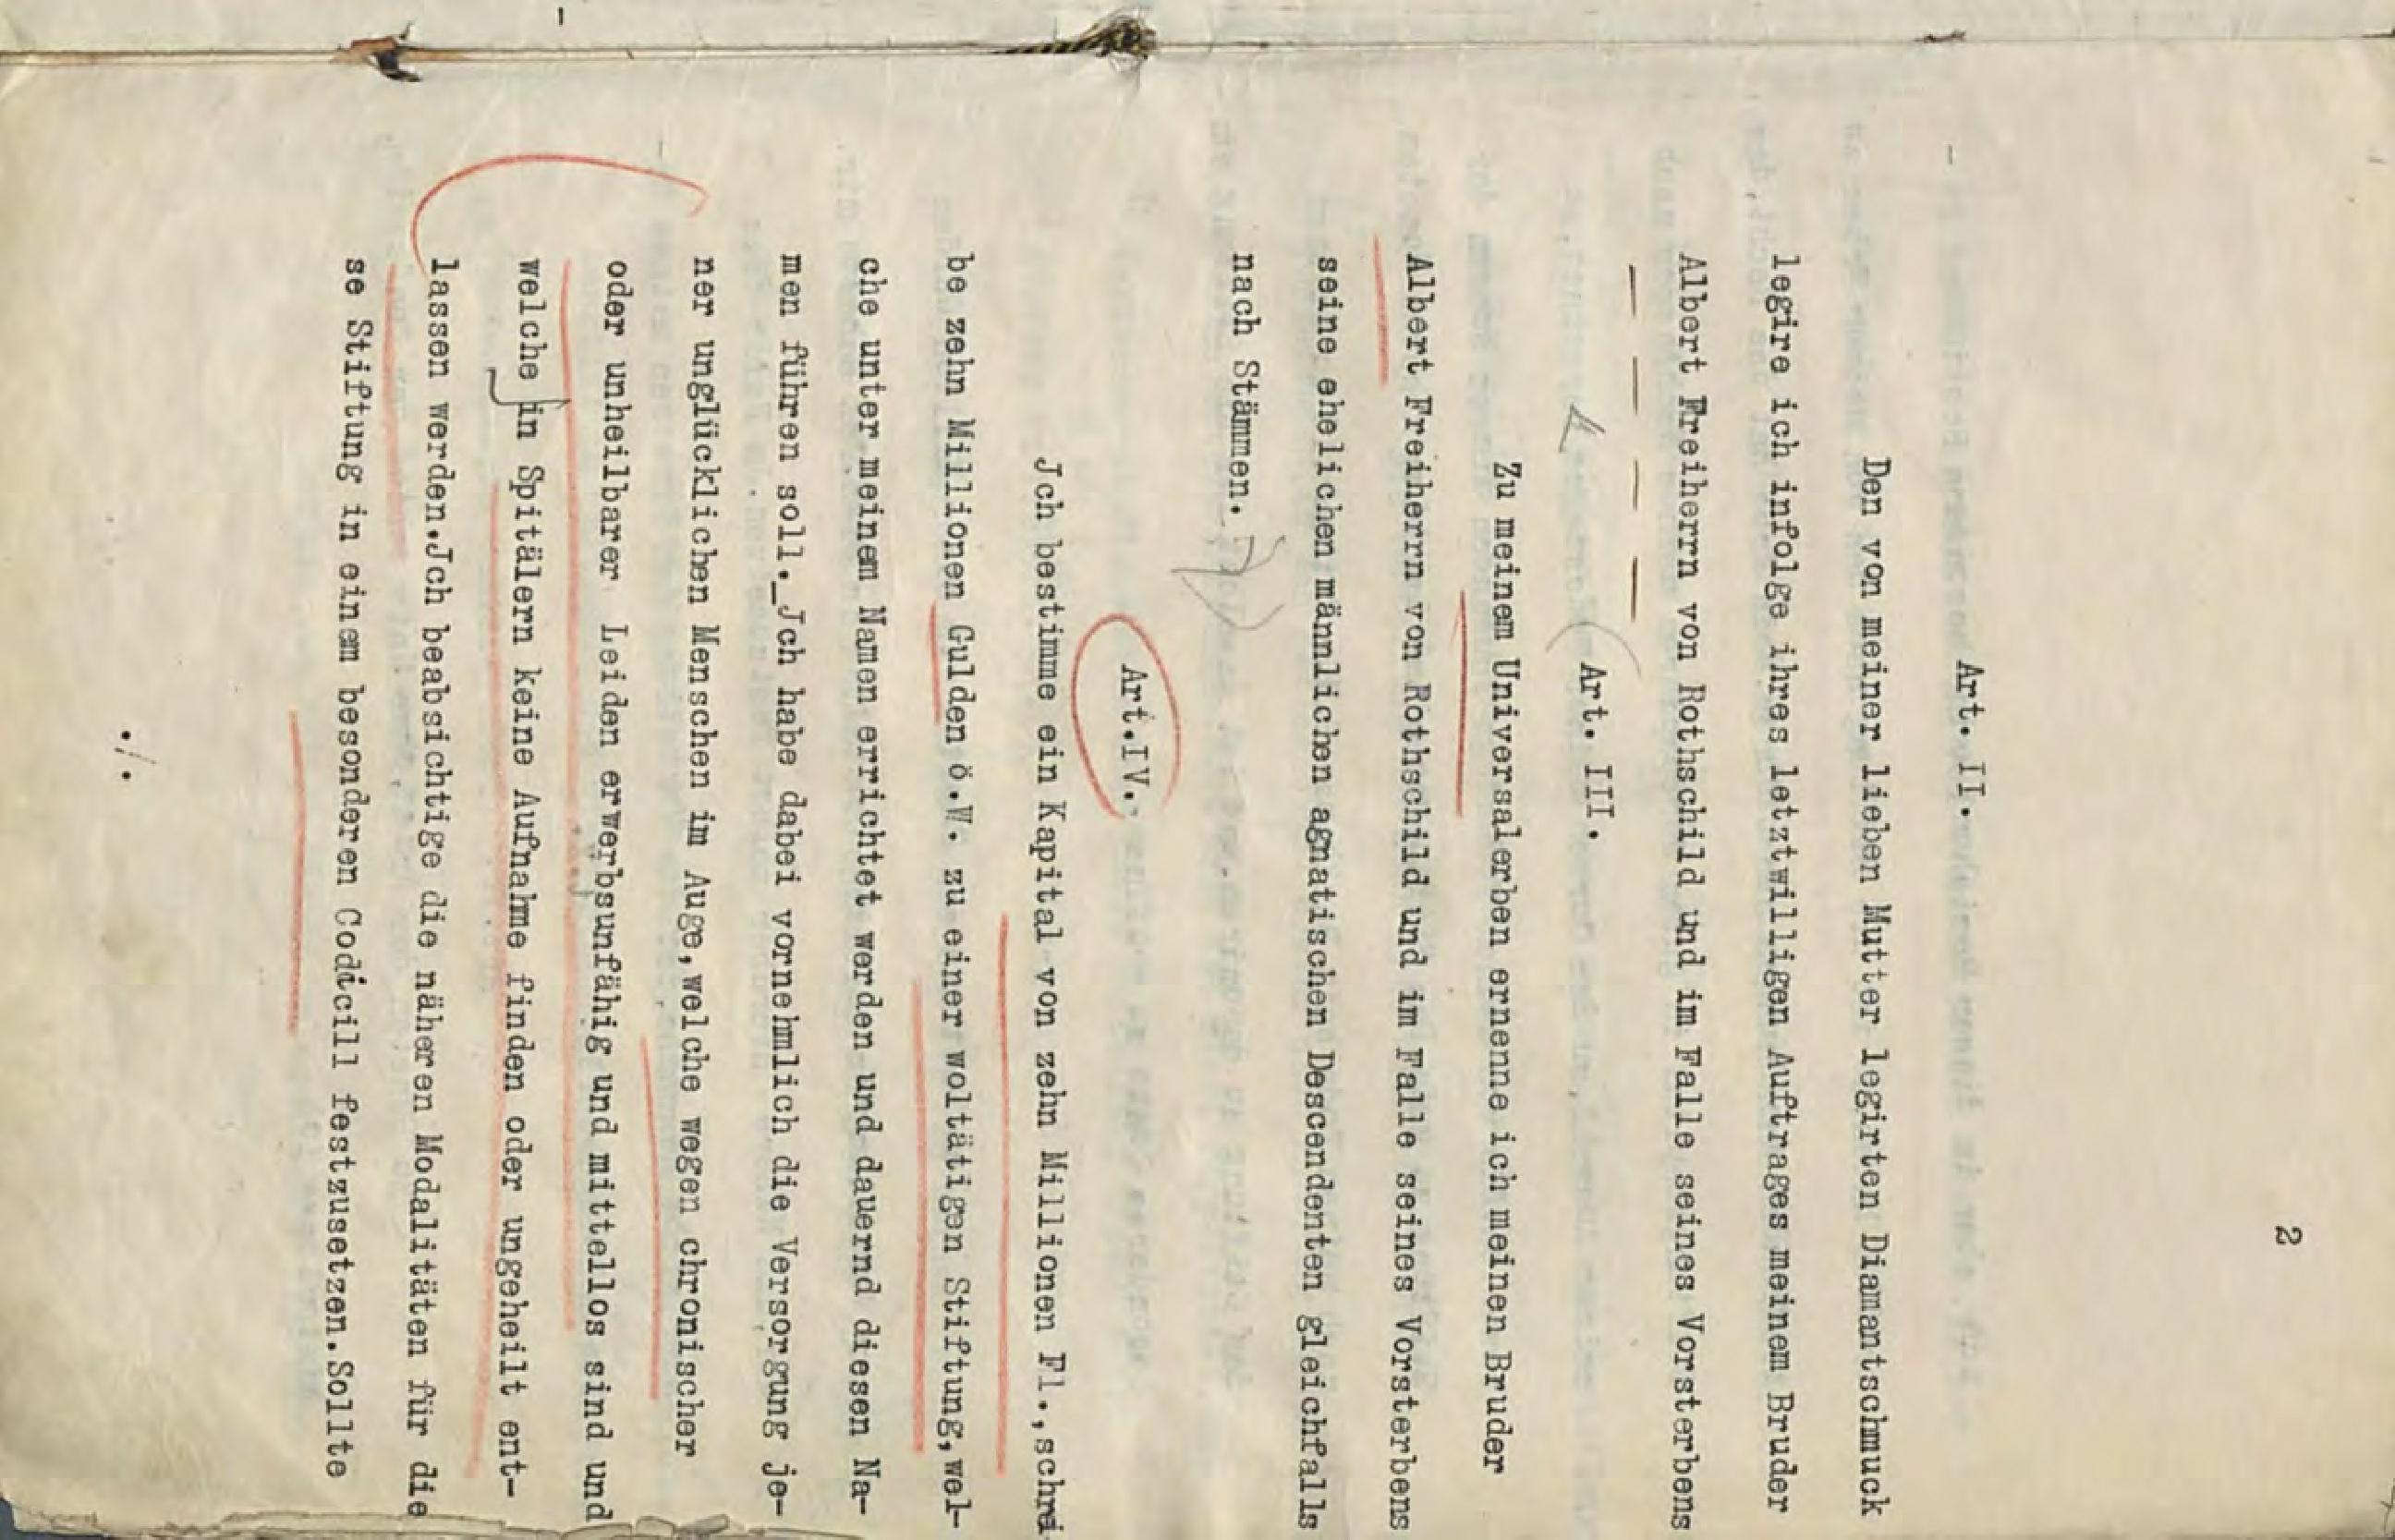 2
Art. II.
Den von meiner lieben Mutter legirten Diamantschmuck
legire ich infolge ihres letztwilligen Auftrages meinem Bruder
Albert Freiherrn von Rothschild und im Falle seines Vorsterbens
— — — —
Art. III.
Zu meinem Universalerben ernenne ich meinen Bruder
Albert Freiherrn von Rothschild und im Falle seines Vorsterbens
seine ehelichen männlichen agnatischen Descendenten gleichfalls
nach Stämmen.
Art.IV.
Jch bestimme ein Kapital von zehn Millionen Fl.,schrei
be zehn Millionen Gulden ö.W. zu einer woltätigen Stiftung,wel-
che unter meinem Namen errichtet werden und dauernd diesen Na-
men führen soll._Jch habe dabei vornehmlich die Versorgung je-
ner unglücklichen Menschen im Auge,welche wegen chronischer
oder unheilbarer Leiden erwerbsunfähig und mittellos sind und
welche in Spitälern keine Aufnahme finden oder ungeheilt ent-
lassen werden.Jch beabsichtige die näheren Modalitäten für die
se Stiftung in einem besonderen Codicill festzusetzen.Sollte
./.